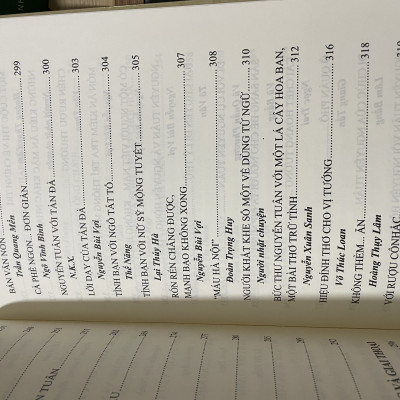 BẠN VĂN NON
Trần Quang Mễn
CÀ PHÊ NGON... ĐƠN GIẢN. ... 299
Ngô Vĩnh Bình
NGUYỄN TUÂN VỚI TẢN ĐÀ ... 300
N.K.X.
LỜI DẠY CỦA TẢN ĐÀ ... 303
Nguyễn Bùi Vợi
TÌNH BẠN VỚI NGÔ TẤT TỐ. ... 304
Thế Năng
TÌNH BẠN VỚI NỮ SỸ MỘNG TUYẾT. ... 305
Lại Thúy Hà
RÓN RÉN CHẲNG ĐƯỢC,
MẠNH BẠO KHÔNG XONG ... 307
Nguyễn Bùi Vợi
"MẬU HÀ NỘI" ... 308
Đoàn Trọng Huy
NGƯỜI KHẮT KHE SỐ MỘT VỀ DÙNG TỪ NGỮ ... 310
Người nhặt chuyện
BỨC THƯ NGUYỄN TUÂN VỚI MỘT LÁ CÂY HOA BAN,
MỘT BÀI THƠ TRỮ TÌNH ... 312
Nguyễn Xuân Sanh
HIỆU ĐÍNH THƠ CHO VỊ TƯỚNG. ... 316
Võ Thúc Loan
KHÔNG THÈM... ĂN. ... 318
Hoàng Thụy Lâm
VỚI RƯỢU CỔ NHẮC.